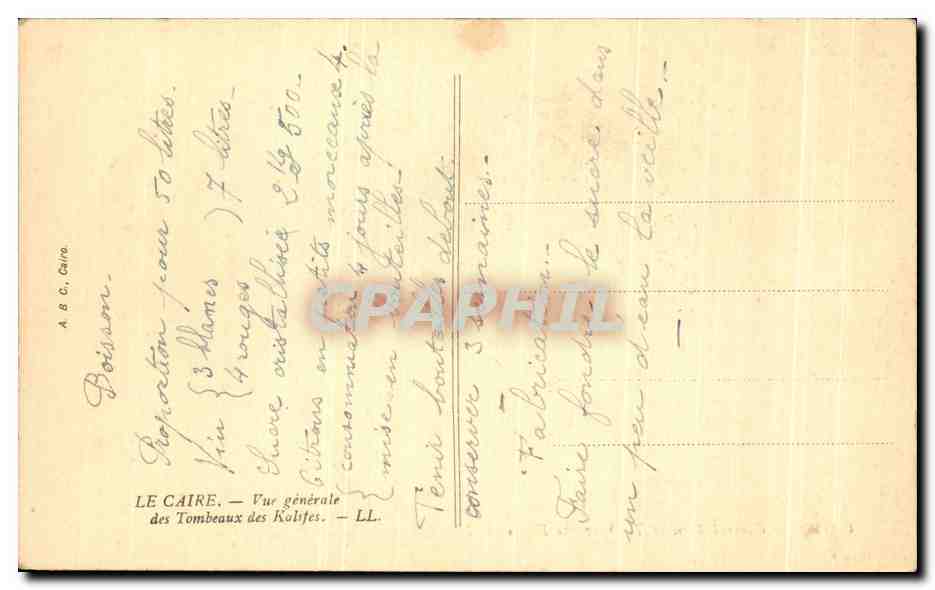 Boisson.
Proportion pour 50 litres.
Vin { 3 blancs
4 rouges ) 7 litres.
Sucre cristallisée 2 kg 500.
Citrons en petits morceaux 4.
{ consommation 4 jours après la
mise en bouteilles.
Tenir bouteilles debout.
conserver 3 semaines.
Fabrication.
Faire fondre le sucre dans
un peu d'eau la veille.
LE CAIRE. — Vue générale
des Tombeaux des Kalifes. — LL.
A B C., Cairo.
CPAPHIL